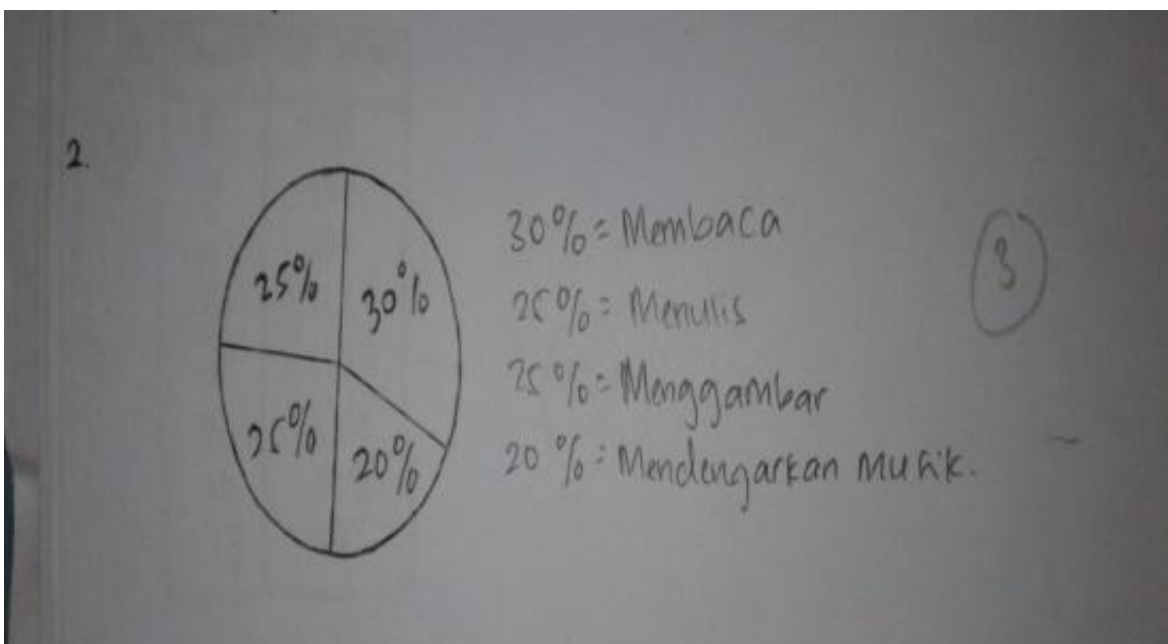 2.
25% 30%
25% 20%
30% = Membaca
25% = Menulis
25% = Menggambar
20% = Mendengarkan musik.
3